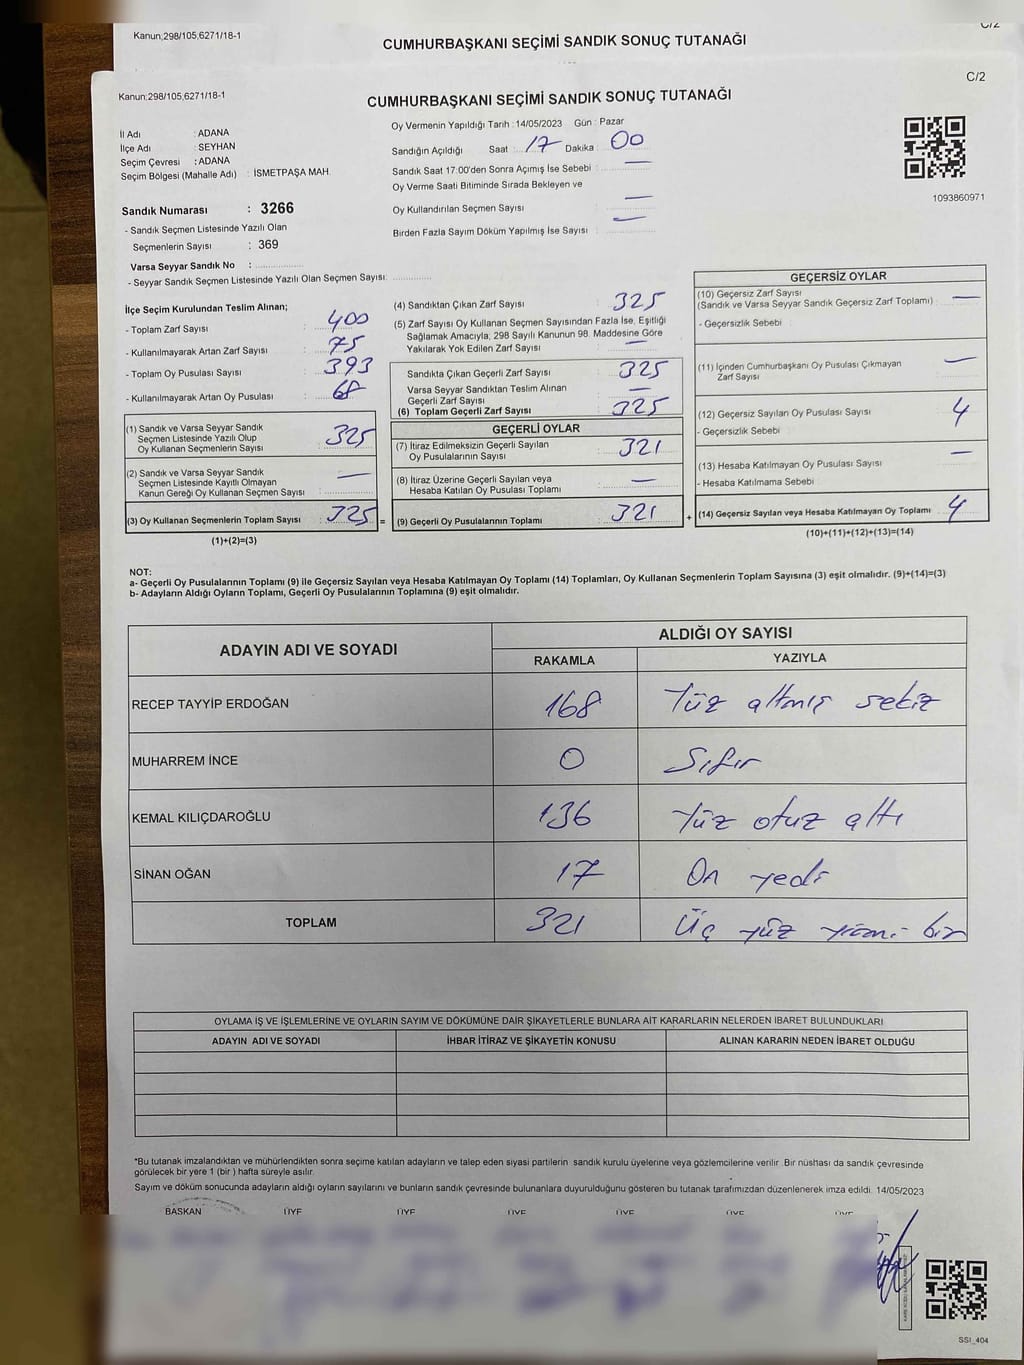 Kanun;298/105,6271/18-1
C/2
CUMHURBAŞKANI SEÇİMİ SANDIK SONUÇ TUTANAĞI
C/2
Kanun;298/105,6271/18-1
CUMHURBAŞKANI SEÇİMİ SANDIK SONUÇ TUTANAĞI
İl Adı : ADANA
İlçe Adı : SEYHAN
Seçim Çevresi : ADANA
Seçim Bölgesi (Mahalle Adı) : İSMETPAŞA MAH.
Sandık Numarası : 3266
- Sandık Seçmen Listesinde Yazılı Olan
Seçmenlerin Sayısı : 369
Varsa Seyyar Sandık No :
- Seyyar Sandık Seçmen Listesinde Yazılı Olan Seçmen Sayısı:
Oy Vermenin Yapıldığı Tarih : 14/05/2023 Gün : Pazar
Sandığın Açıldığı Saat : 17 Dakika : 00
Sandık Saat 17:00'den Sonra Açımış İse Sebebi : —
Oy Verme Saati Bitiminde Sırada Bekleyen ve
Oy Kullandırılan Seçmen Sayısı : —
Birden Fazla Sayım Döküm Yapılmış İse Sayısı : —
1093860971
İlçe Seçim Kurulundan Teslim Alınan;
- Toplam Zarf Sayısı : 400
- Kullanılmayarak Artan Zarf Sayısı : 75
- Toplam Oy Pusulası Sayısı : 393
- Kullanılmayarak Artan Oy Pusulası : 68
(1) Sandık ve Varsa Seyyar Sandık
Seçmen Listesinde Yazılı Olup
Oy Kullanan Seçmenlerin Sayısı : 325
(2) Sandık ve Varsa Seyyar Sandık
Seçmen Listesinde Kayıtlı Olmayan
Kanun Gereği Oy Kullanan Seçmen Sayısı : —
(3) Oy Kullanan Seçmenlerin Toplam Sayısı : 325 =
(1)+(2)=(3)
(4) Sandıktan Çıkan Zarf Sayısı : 325
(5) Zarf Sayısı Oy Kullanan Seçmen Sayısından Fazla İse, Eşitliği
Sağlamak Amacıyla, 298 Sayılı Kanunun 98. Maddesine Göre
Yakılarak Yok Edilen Zarf Sayısı : —
Sandıkta Çıkan Geçerli Zarf Sayısı : 325
Varsa Seyyar Sandıktan Teslim Alınan
Geçerli Zarf Sayısı : —
(6) Toplam Geçerli Zarf Sayısı : 325
GEÇERLİ OYLAR
(7) İtiraz Edilmeksizin Geçerli Sayılan
Oy Pusulalarının Sayısı : 321
(8) İtiraz Üzerine Geçerli Sayılan veya
Hesaba Katılan Oy Pusulası Toplamı : —
(9) Geçerli Oy Pusulalarının Toplamı : 321 +
GEÇERSİZ OYLAR
(10) Geçersiz Zarf Sayısı
(Sandık ve Varsa Seyyar Sandık Geçersiz Zarf Toplamı) : —
- Geçersizlik Sebebi :
(11) İçinden Cumhurbaşkanı Oy Pusulası Çıkmayan
Zarf Sayısı : —
(12) Geçersiz Sayılan Oy Pusulası Sayısı : 4
- Geçersizlik Sebebi :
(13) Hesaba Katılmayan Oy Pusulası Sayısı : —
- Hesaba Katılmama Sebebi :
(14) Geçersiz Sayılan veya Hesaba Katılmayan Oy Toplamı : 4
(10)+(11)+(12)+(13)=(14)
NOT:
a- Geçerli Oy Pusulalarının Toplamı (9) ile Geçersiz Sayılan veya Hesaba Katılmayan Oy Toplamı (14) Toplamları, Oy Kullanan Seçmenlerin Toplam Sayısına (3) eşit olmalıdır. (9)+(14)=(3)
b- Adayların Aldığı Oyların Toplamı, Geçerli Oy Pusulalarının Toplamına (9) eşit olmalıdır.
ADAYIN ADI VE SOYADI ALDIĞI OY SAYISI
RAKAMLA YAZIYLA
RECEP TAYYİP ERDOĞAN 168 Yüz altmış sekiz
MUHARREM İNCE 0 Sıfır
KEMAL KILIÇDAROĞLU 136 Yüz otuz altı
SİNAN OĞAN 17 On yedi
TOPLAM 321 Üç yüz yirmi bir
OYLAMA İŞ VE İŞLEMLERİNE VE OYLARIN SAYIM VE DÖKÜMÜNE DAİR ŞİKAYETLERLE BUNLARA AİT KARARLARIN NELERDEN İBARET BULUNDUKLARI
ADAYIN ADI VE SOYADI İHBAR İTİRAZ VE ŞİKAYETİN KONUSU ALINAN KARARIN NEDEN İBARET OLDUĞU
*Bu tutanak imzalandıktan ve mühürlendikten sonra seçime katılan adayların ve talep eden siyasi partilerin sandık kurulu üyelerine veya gözlemcilerine verilir. Bir nüshası da sandık çevresinde
görülecek bir yere 1 (bir ) hafta süreyle asılır.
Sayım ve döküm sonucunda adayların aldığı oyların sayılarını ve bunların sandık çevresinde bulunanlara duyurulduğunu gösteren bu tutanak tarafımızdan düzenlenerek imza edildi. 14/05/2023
BAŞKAN ÜYE ÜYE ÜYE ÜYE ÜYE ÜYE
SSI_404